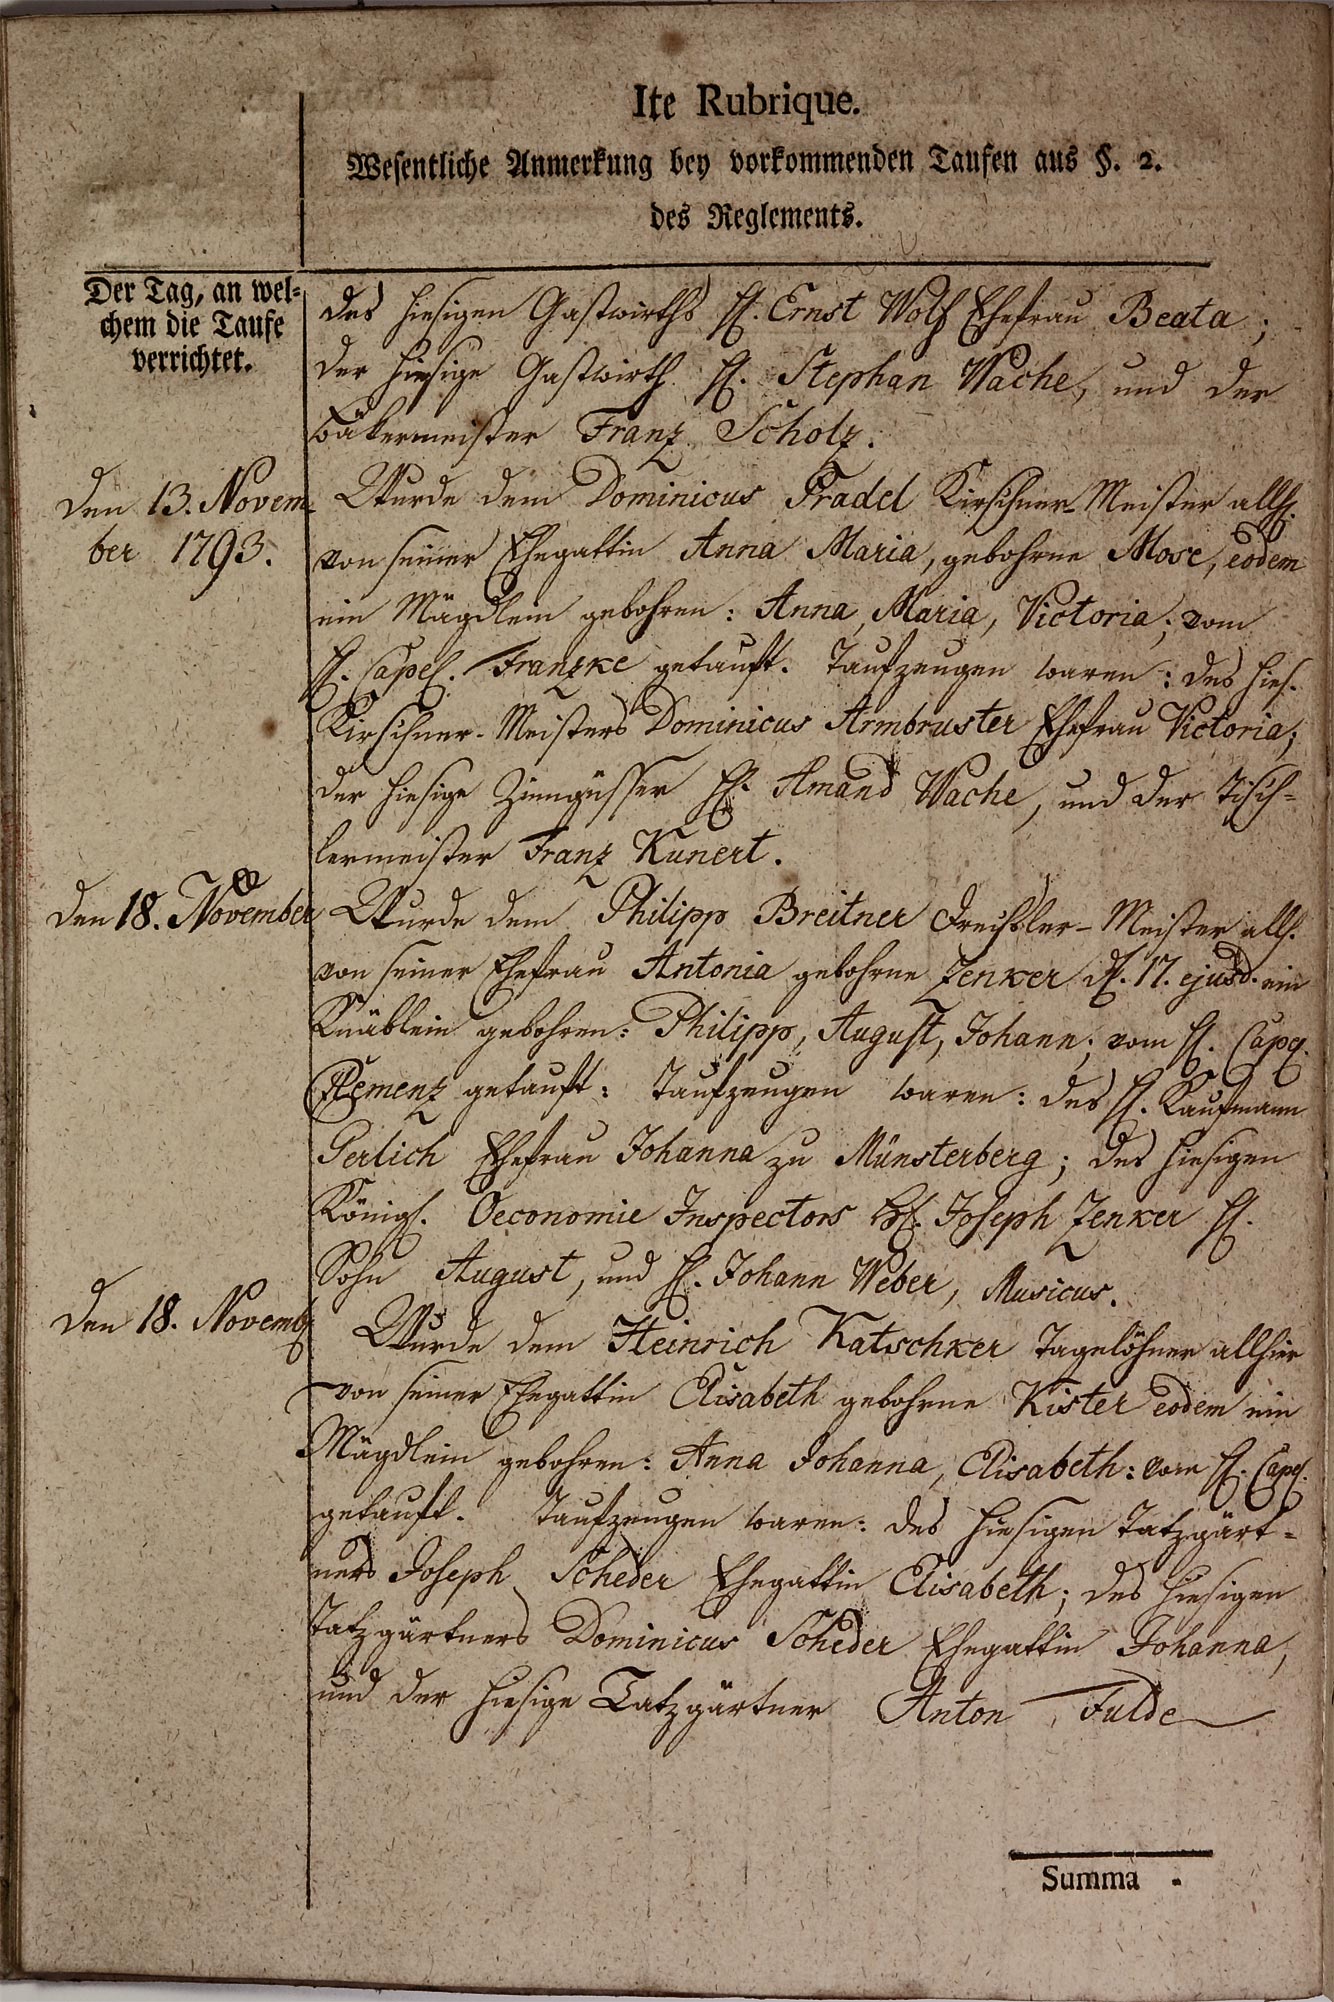 Ite Rubrique.
Wesentliche Anmerkung bey vorkommenden Taufen aus §. 2.
des Reglements.
Der Tag, an wel-
chem die Taufe
verrichtet.
des hiesigen Gastwirths H. Ernst Wolf Ehefrau Beata;
der hiesige Gastwirth H. Stephan Wache, und der
Bäkermeister Franz Scholz.
den 13. Novem-
ber 1793.
Wurde dem Dominicus Pradel Kirschner-Meister allh.
von seiner Ehegattin Anna Maria, gebohrne Mose, eodem
ein Mägdlein gebohren: Anna, Maria, Victoria; vom
H. Capel. Franzke getauft. Taufzeugen waren: des hies.
Kirschner-Meisters Dominicus Armbruster Ehefrau Victoria;
der hiesige Zinngüsser H. Amand Wache, und der Tisch-
lermeister Franz Kunert.
den 18. November
Wurde dem Philipp Breitner Drechsler-Meister allh.
von seiner Ehefrau Antonia gebohrne Zenker d. 17. ejusd. ein
Knäblein gebohren: Philipp, August, Johann; vom H. Capel.
Klemenz getauft: Taufzeugen waren: des H. Kaufmann
Gerlich Ehefrau Johanna zu Münsterberg; des hiesigen
Königl. Oeconomie Inspectors H. Joseph Zenker H.
Sohn August, und H. Johann Weber, Musicus.
den 18. Novemb.
Wurde dem Heinrich Katschker Tagelöhner allhier
von seiner Ehegattin Elisabeth gebohrne Kister eodem ein
Mägdlein gebohren: Anna Johanna, Elisabeth: vom H. Capel.
getauft. Taufzeugen waren: des hiesigen Tatzgärt-
ners Joseph Scheder Ehegattin Elisabeth; des hiesigen
Tatzgärtners Dominicus Scheder Ehegattin Johanna,
und der hiesige Tatzgärtner Anton Fulde
Summa -